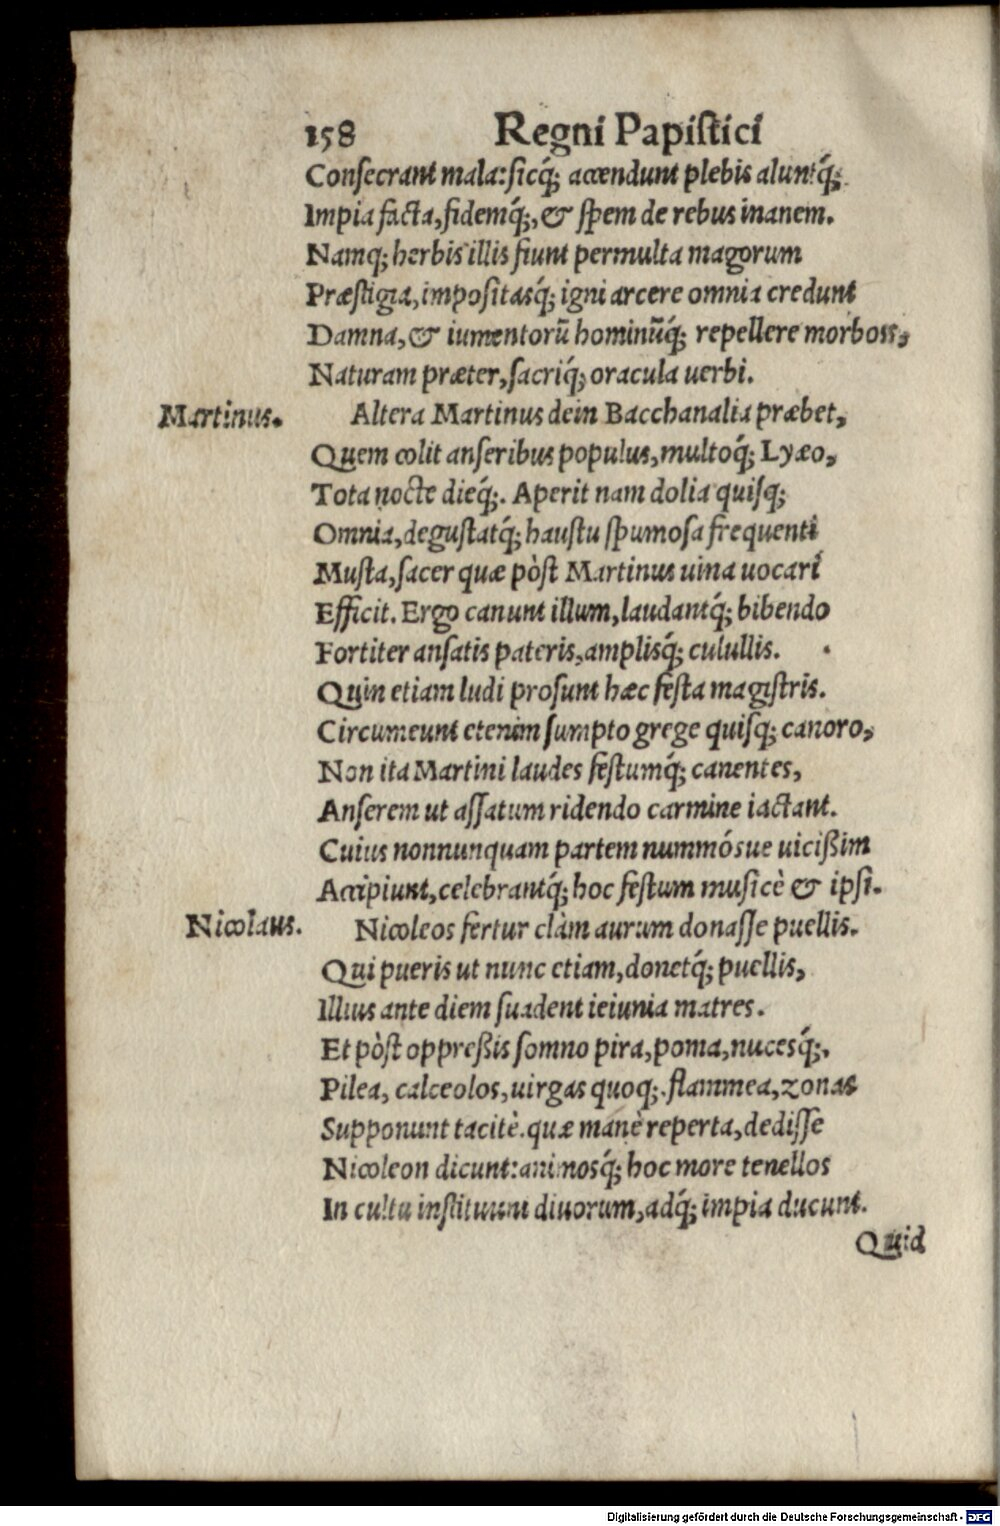 158 Regni Papiſtici
Conſecrant mala: ſicq́; accendunt plebis aluntq́;
Impia facta, fidemq́;, & ſpem de rebus inanem.
Namq; herbis illis fiunt permulta magorum
Præſtigia, impoſitasq́; igni arcere omnia credunt
Damna, & iumentorū hominūq́; repellere morbos,
Naturam præter, ſacriq́; oracula uerbi.
Martinus. Altera Martinus dein Bacchanalia præbet,
Quem colit anſeribus populus, multoq́; Lyæo,
Tota nocte dieq́;. Aperit nam dolia quiſq;
Omnia, deguſtatq́; hauſtu ſpumoſa frequenti
Muſta, ſacer quæ pòſt Martinus uina uocari
Efficit. Ergo canunt illum, laudantq́; bibendo
Fortiter anſatis pateris, amplisq́; culullis.
Quin etiam ludi proſunt hæc feſta magiſtris.
Circumeunt etenim ſumpto grege quiſq; canoro,
Non ita Martini laudes feſtumq́; canentes,
Anſerem ut aſſatum ridendo carmine iactant.
Cuius nonnunquam partem nummósue uicißim
Accipiunt, celebrantq́; hoc feſtum muſicè & ipſi.
Nicolaus. Nicoleos fertur clàm aurum donaſſe puellis.
Qui pueris ut nunc etiam, donetq́; puellis,
Illius ante diem ſuadent ieiunia matres.
Et pòſt oppreßis ſomno pira, poma, nucesq́;,
Pilea, calceolos, uirgas quoq;. flammea, zonas
Supponunt tacitè. quæ manè reperta, dediſſe
Nicoleon dicunt: animosq́; hoc more tenellos
In cultu inſtituunt diuorum, adq́; impia ducunt.
Quid
Digitalisierung gefördert durch die Deutsche Forschungsgemeinschaft - DFG